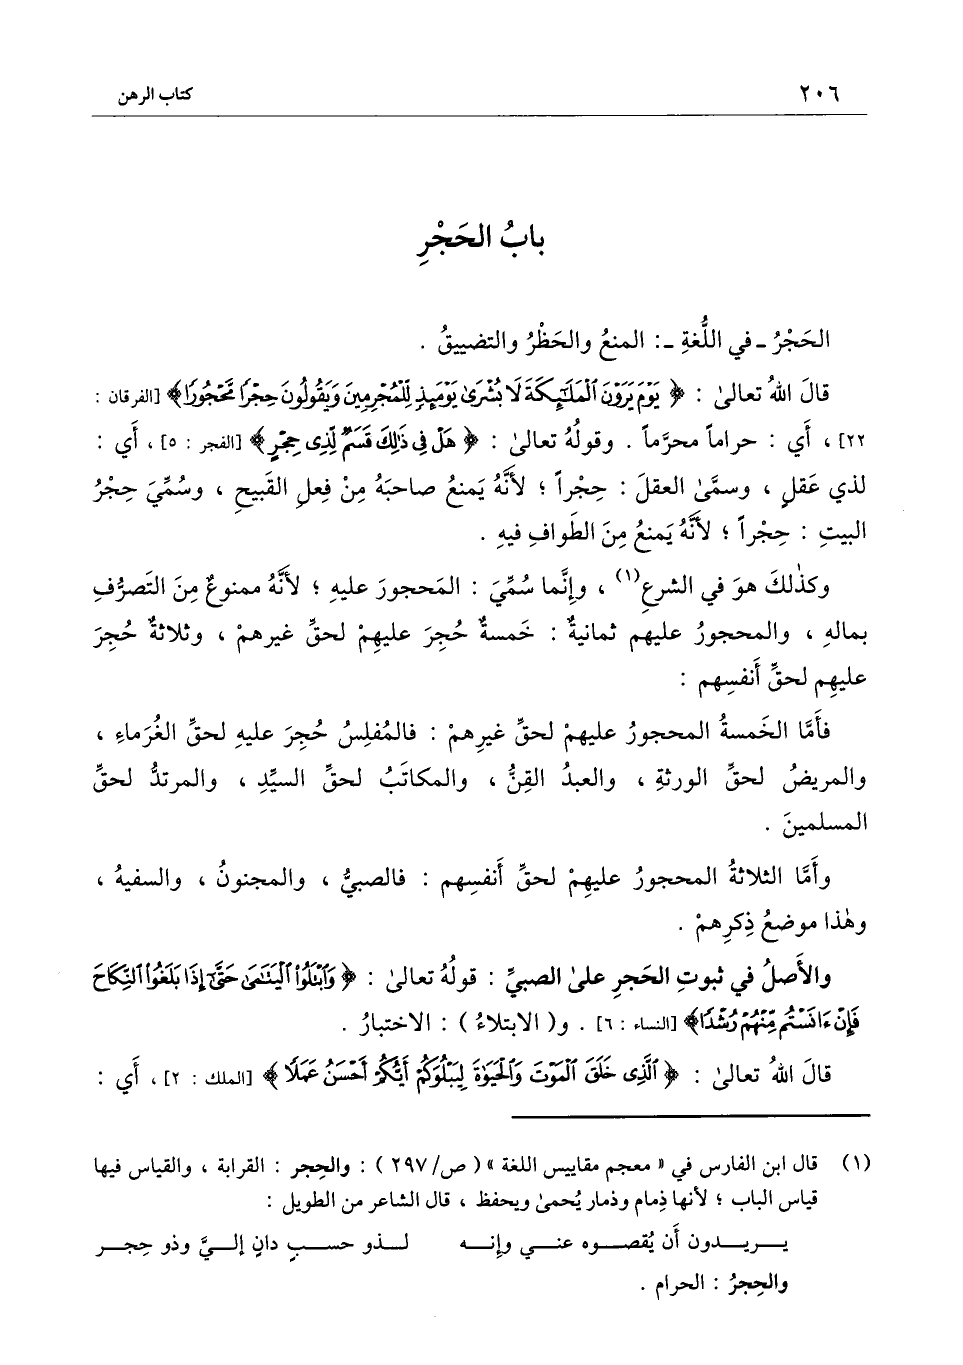 ٢٠٦ كتاب الرهن
بابُ الحَجْرِ
الحَجْرُ ـ في اللُّغةِ ـ: المنعُ والحَظْرُ والتضييقُ .
قالَ اللهُ تعالىٰ : ﴿ يَوْمَ يَرَوْنَ ٱلْمَلَـٰٓئِكَةَ لَا بُشْرَىٰ يَوْمَئِذٍ لِّلْمُجْرِمِينَ وَيَقُولُونَ حِجْرًا مَّحْجُورًا ﴾ [الفرقان :
٢٢] ، أَي : حراماً محرَّماً . وقولُهُ تعالىٰ : ﴿ هَلْ فِى ذَٰلِكَ قَسَمٌ لِّذِى حِجْرٍ ﴾ [الفجر : ٥] ، أَي :
لذي عَقلٍ ، وسمَّىٰ العقلَ : حِجْراً ؛ لأَنَّهُ يَمنعُ صاحبَهُ مِنْ فعلِ القَبيحِ ، وسُمِّيَ حِجْرُ
البيتِ : حِجْراً ؛ لأَنَّهُ يَمنعُ مِنَ الطَوافِ فيهِ .
وكذٰلكَ هوَ في الشرعِ(١) ، وإِنَّما سُمِّيَ : المَحجورَ عليهِ ؛ لأَنَّهُ ممنوعٌ مِنَ التَصرُّفِ
بمالهِ ، والمحجورُ عليهم ثمانيةٌ : خَمسةٌ حُجِرَ عليهِمْ لحقِّ غيرِهمْ ، وثلاثةٌ حُجِرَ
عليهِم لحقِّ أَنفسِهم :
فأَمَّا الخَمسةُ المحجورُ عليهمْ لحقِّ غيرِهمْ : فالمُفلِسُ حُجِرَ عليهِ لحقِّ الغُرَماءِ ،
والمريضُ لحقِّ الورثةِ ، والعبدُ القِنُّ ، والمكاتَبُ لحقِّ السيِّدِ ، والمرتدُّ لحقِّ
المسلمينَ .
وأَمَّا الثلاثةُ المحجورُ عليهِمْ لحقِّ أَنفسِهم : فالصبيُّ ، والمجنونُ ، والسفيهُ ،
وهٰذا موضعُ ذِكرِهمْ .
والأَصلُ في ثبوتِ الحَجرِ علىٰ الصبيِّ : قولُهُ تعالىٰ : ﴿ وَٱبْتَلُوا۟ ٱلْيَتَـٰمَىٰ حَتَّىٰٓ إِذَا بَلَغُوا۟ ٱلنِّكَاحَ
فَإِنْ ءَانَسْتُم مِّنْهُمْ رُشْدًا ﴾ [النساء : ٦] . و( الابتلاءُ ) : الاختبارُ .
قالَ اللهُ تعالىٰ : ﴿ ٱلَّذِى خَلَقَ ٱلْمَوْتَ وَٱلْحَيَوٰةَ لِيَبْلُوَكُمْ أَيُّكُمْ أَحْسَنُ عَمَلًا ﴾ [الملك : ٢] ، أَي :
(١) قال ابن الفارس في « معجم مقاييس اللغة » ( ص/٢٩٧ ) : والحِجر : القرابة ، والقياس فيها
قياس الباب ؛ لأنها ذِمام وذمار يُحمىٰ ويحفظ ، قال الشاعر من الطويل :
يـريـدون أَن يُقصـوه عنـي وإِنـه لـذو حسـبٍ دانٍ إليَّ وذو حِجـر
والحِجرُ : الحرام .